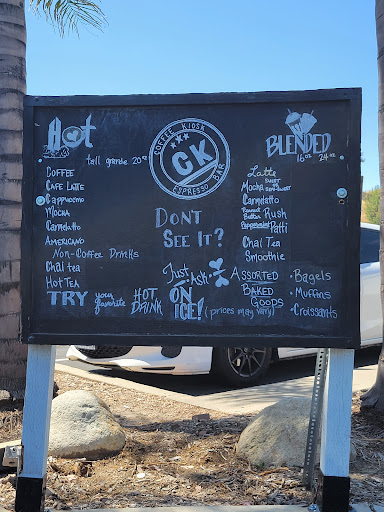 Hot
tall grande 20oz
COFFEE
CAFE LATTE
Cappuccino
MOCHA
Carmelatto
AMERICANO
Non-Coffee Drinks
Chai tea
HOT TEA
TRY your favorite HOT DRINK ON ICE! (prices may vary)
COFFEE KIOSK
CK
ESPRESSO BAR
DONT SEE IT?
Just Ask
BLENDED
16oz 24oz
Latte
Mocha SWEET or SEMI-SWEET
Carmelatto
Peanut Butter Rush
Peppermint Patti
Chai Tea
Smoothie
ASSORTED BAKED GOODS
• Bagels
• Muffins
• Croissants